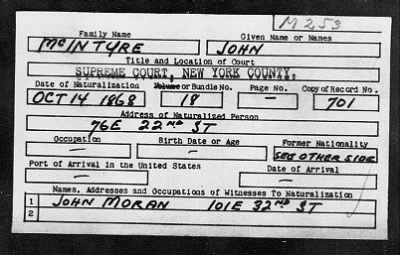 M 253
Family Name Given Name or Names
McINTYRE JOHN
Title and Location of Court
SUPREME COURT, NEW YORK COUNTY.
Date of Naturalization Volume or Bundle No. Page No. Copy of Record No.
OCT 14 1868 18 — 701
Address of Naturalized Person
76E 22ND ST
Occupation Birth Date or Age Former Nationality
— — SEE OTHER SIDE
Port of Arrival in the United States Date of Arrival
— —
Names, Addresses and Occupations of Witnesses To Naturalization
1 JOHN MORAN 101E 32ND ST
2